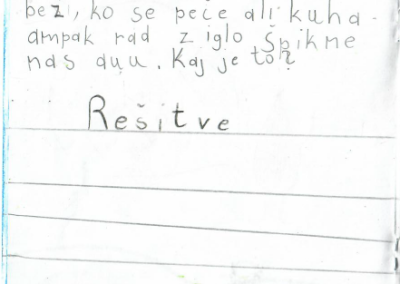 beži, ko se peče ali kuha.
ampak rad z iglo špikne
nas duu. Kaj je to?
Rešitve